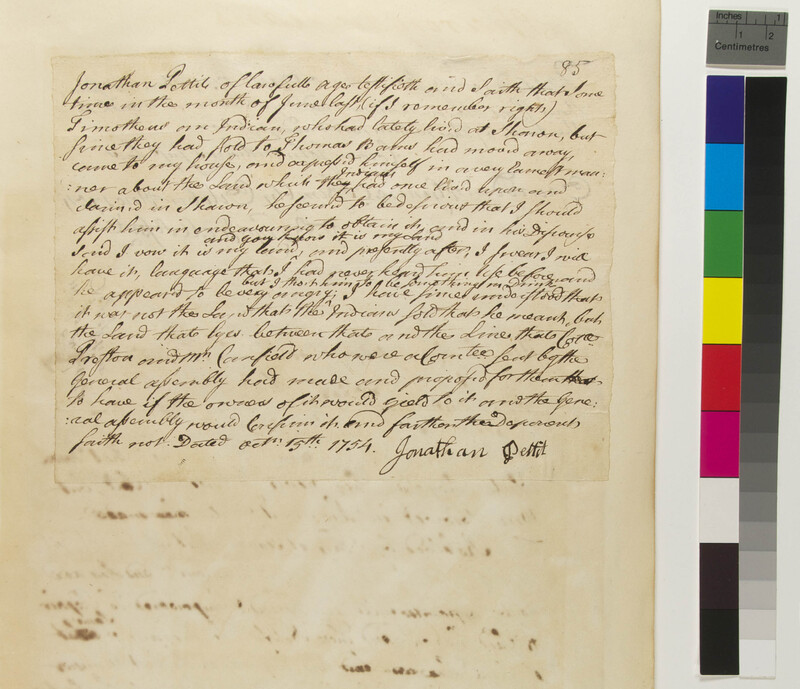 85
Jonathan Pettit, of lawfull age testifieth and saith that some
time in the month of June last, (if I remember right,)
Timotheus an Indian, who had lately lived at Sharon, but
since they had sold to Thomas Barns had moved away,
came to my house, and expressed himself in a very earnest man-
:ner about the Land which they Indians had once lived upon and
claimed in Sharon, he seemed to be desirous that I should
assist him in endeavouring to obtain it, and in his Discourse
said I vow it is my land, and you know it is my Land and presently after, I swear I will
have it, language that I had never heard him use before, and
he appeard to be very angry; but I thot him to be something in drink I have since understood that
it was not the Land that the Indians sold that he meant, but
the Land that lyes between that and the Line, that Coll.
Preston and Mr. Canfield who were a Comtee sent by the
General assembly had made and proposed for them
to have if the owners of it would yield to it and the Gene:
:ral assembly would confirm it, and farther the Deponent
saith not. Dated octr. 15th. 1754.
Jonathan Pettit
Inches 1 2
Centimetres